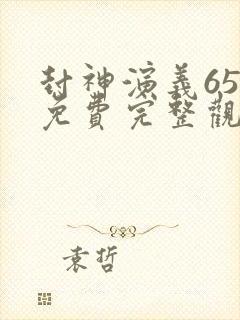 封神演義65
免費完整觀
袁哲